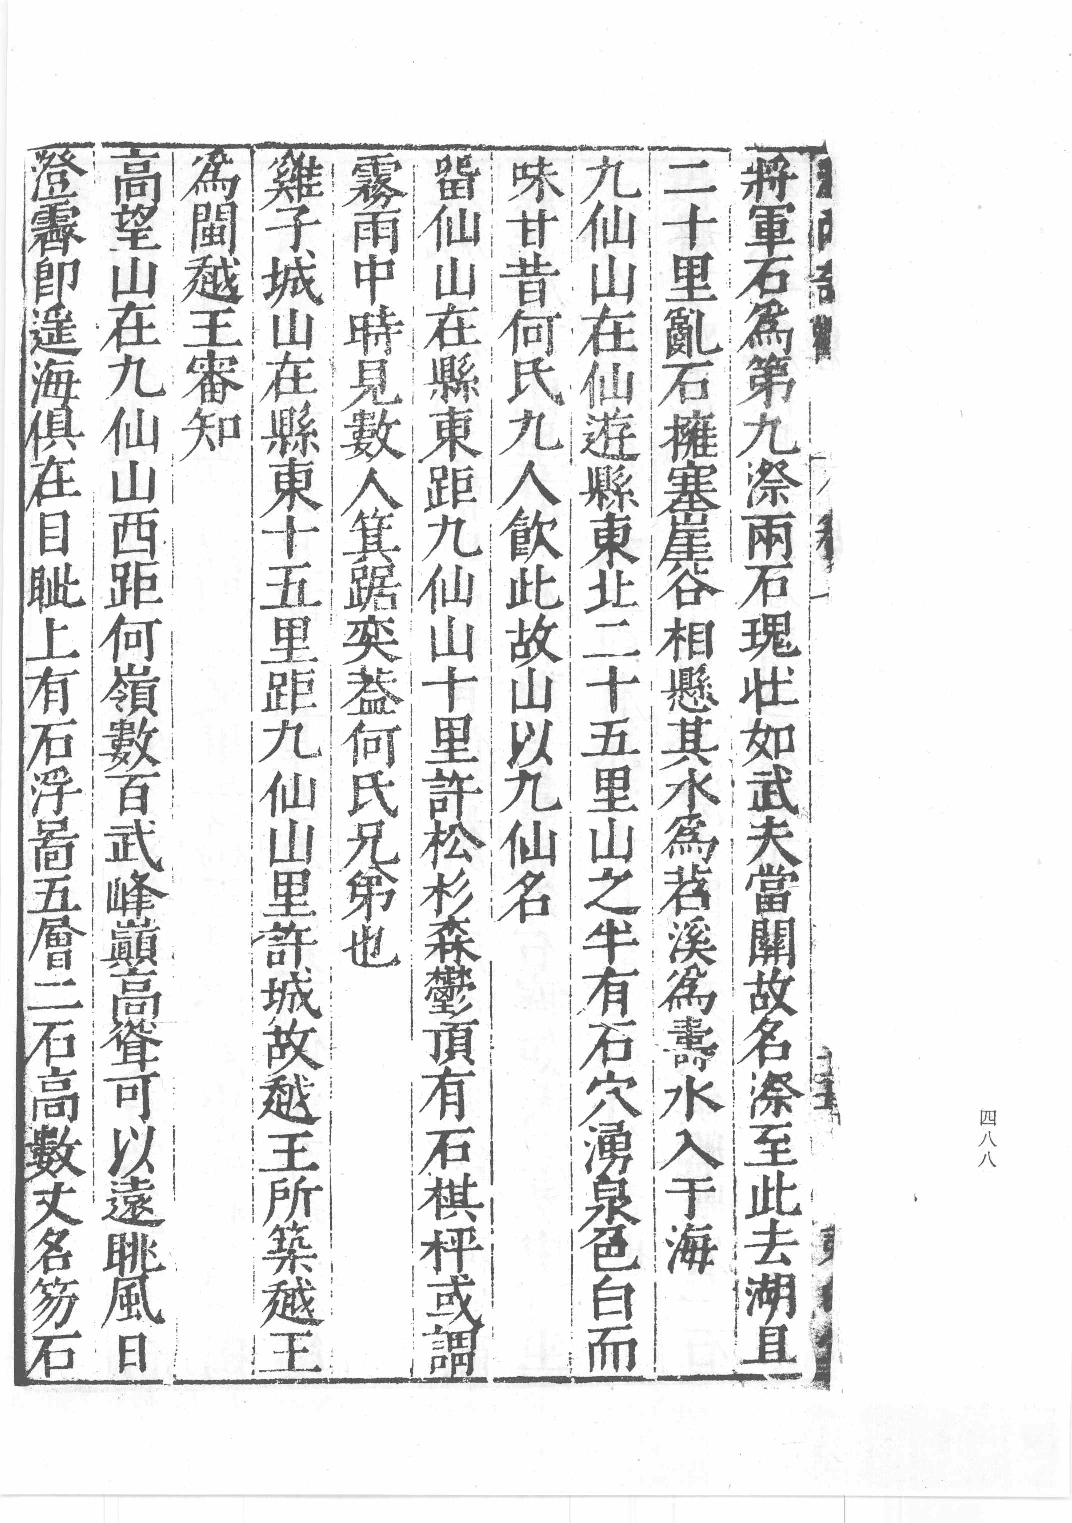 將軍石爲第九漈兩石瑰壯如武夫當關故名漈至此去湖且
二十里亂石擁塞崖谷相懸其水爲萡溪爲壽水入于海
九仙山在仙遊縣東北二十五里山之半有石穴湧泉色白而
味甘昔何氏九人飲此故山以九仙名
畱仙山在縣東距九仙山十里許松杉森鬱頂有石棋枰或謂
霧雨中時見數人箕踞奕葢何氏兄弟也
雞子城山在縣東十五里距九仙山里許城故越王所築越王
爲閩越王審知
高望山在九仙山西距何嶺數百武峰巔高聳可以遠眺風日
澄霽卽遥海俱在目眦上有石浮啚五層二石高數丈名笏石
四八八